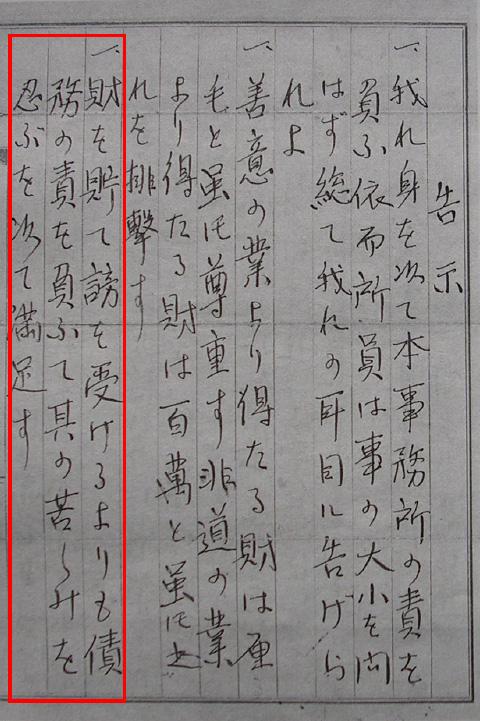 告示
一、我れ身を以て本事務所の責を
負ふ依而所員は事の大小を問
はず総て我れの耳目に告げら
れよ
一、善意の業より得たる財は厘
毛と虽ども尊重す非道の業
より得たる財は百萬と虽ども之
れを排撃す
一、財を貯て謗を受けるよりも債
務の責を負ふて其の苦しみを
忍ぶを以て満足す